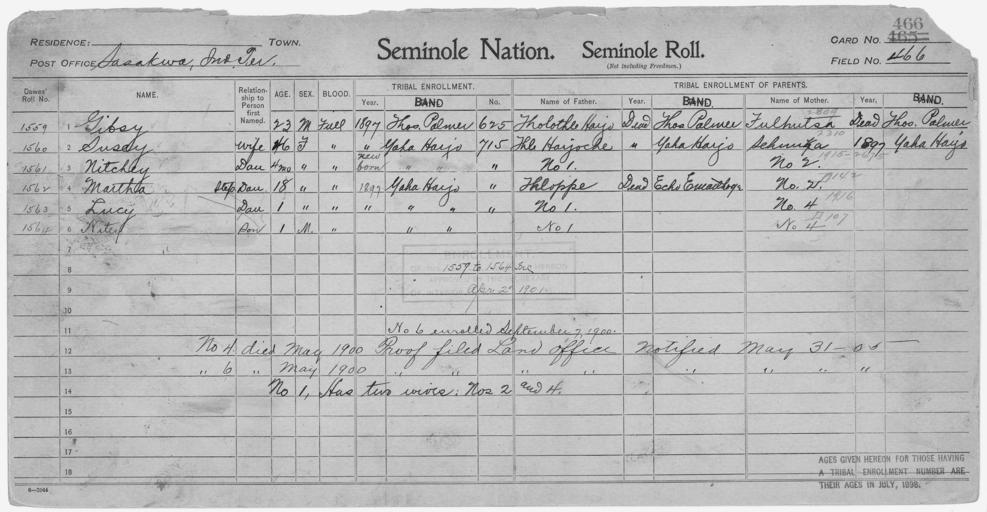 466
RESIDENCE: TOWN. Seminole Nation. Seminole Roll. CARD NO. 465
POST OFFICE Sasakwa, Ind. Ter. (Not including Freedmen.) FIELD NO. 466
Dawes' Roll No. NAME. Relationship to Person first Named. AGE. SEX. BLOOD. TRIBAL ENROLLMENT. TRIBAL ENROLLMENT OF PARENTS.
Year. BAND No. Name of Father. Year. BAND. Name of Mother. Year. BAND.
1559 1 Gibsy 23 M Full 1897 Thos. Palmer 625 Tholothle Harjo Dead Thos Palmer Fulhutsa Dead Thos. Palmer
1560 2 Susey Wife 46 F " " Yaha Harjo 715 Thle Harjoche " Yaha Harjo 1897 Yaha Harjo
1561 3 Nitchey Dau 4mo " " new born " " " No 1. No 2.
1562 4 Martha Step Dau 18 " " 1897 Yaha Harjo " Thloppe Dead No. 2.
1563 5 Lucy Dau 1 " " " " " " No 1. No. 4
1564 6 Son 1 M. " " " No 1 No 4
7
8 1559 to 1564 Inc
9 Apr 2 1901
10
11 No 6 enrolled September 7, 1900.
12 No 4 died May 1900 Proof filed Land office Notified May 31-
13 " 6 " May 1900 " " " " " " "
14 No 1, Has two wives: Nos 2 and 4.
15
16
17
18
AGES GIVEN HEREON FOR THOSE HAVING
A TRIBAL ENROLLMENT NUMBER ARE
THEIR AGES IN JULY, 1898.